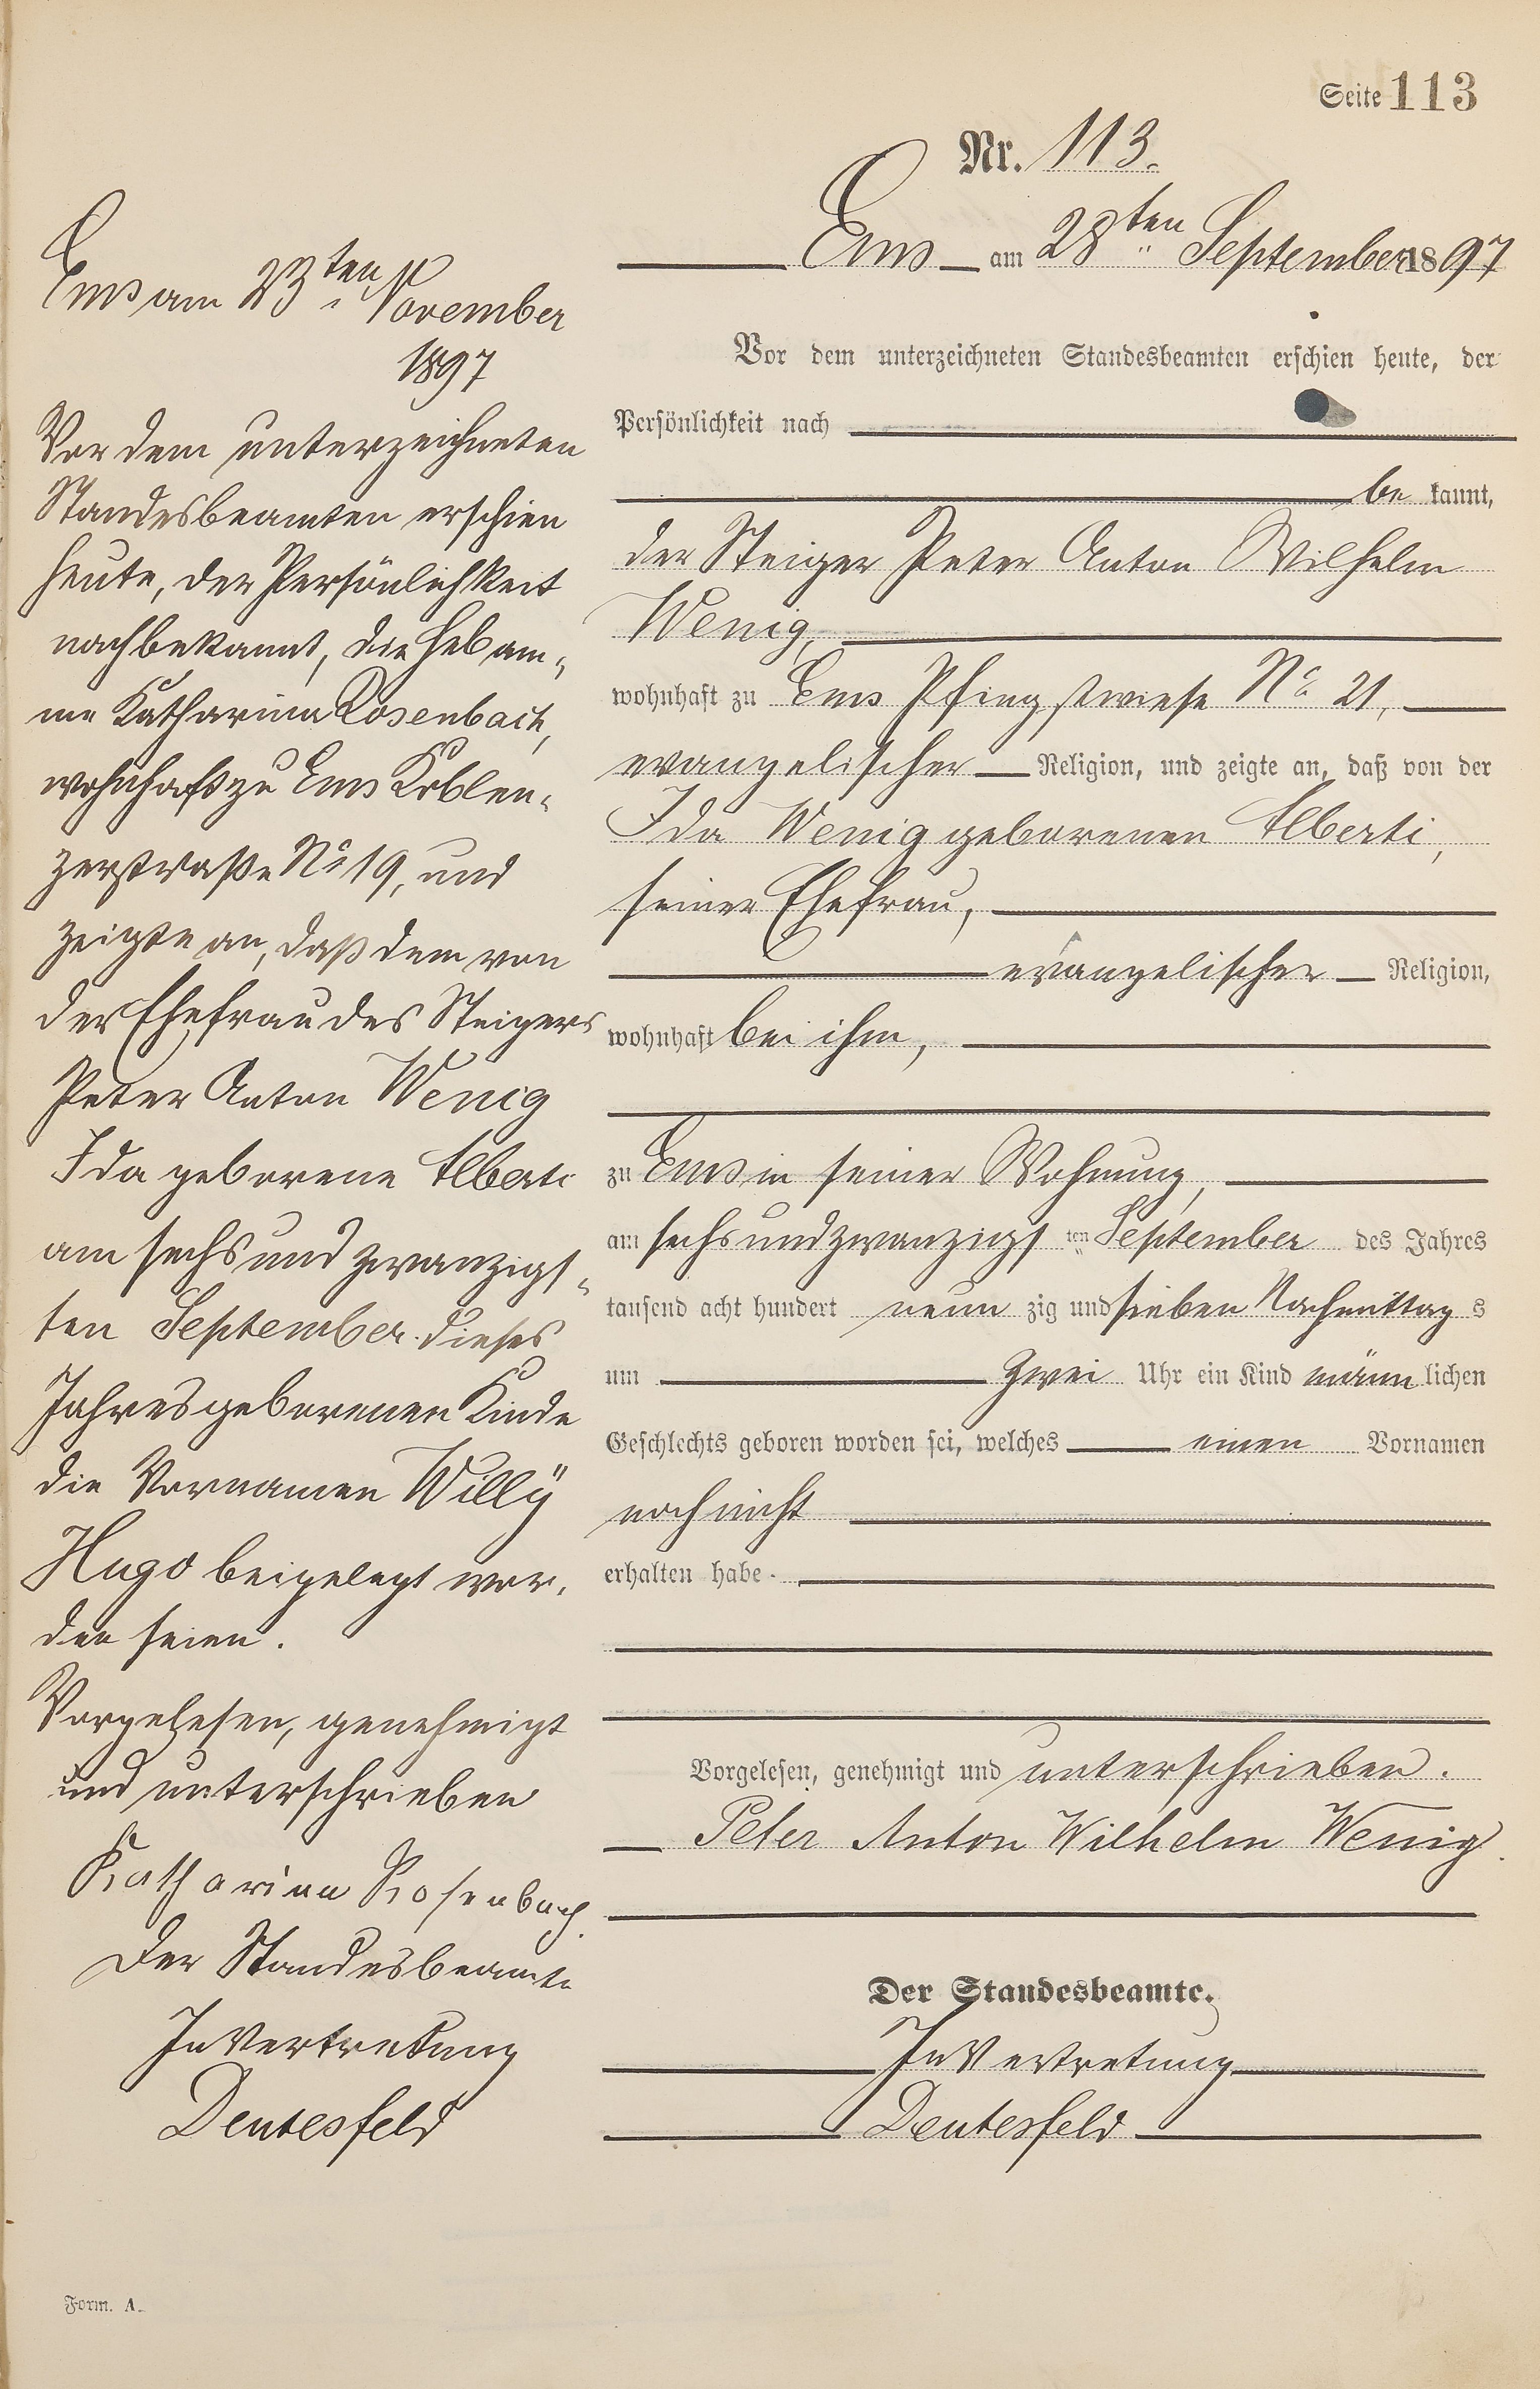 Seite 113
Nr. 113.
Ems am 28ten September 1897
Vor dem unterzeichneten Standesbeamten erschien heute, der
Persönlichkeit nach
be kannt,
der Steiger Peter Anton Wilhelm
Wenig,
wohnhaft zu Ems Pfingstwiese No 21,
evangelischer Religion, und zeigte an, daß von der
Ida Wenig geborenen Alberti,
seiner Ehefrau,
evangelischer Religion,
wohnhaft bei ihm,
zu Ems in seiner Wohnung,
am sechsundzwanzigsten September des Jahres
tausend acht hundert neun zig und sieben Nachmittag s
um Zwei Uhr ein Kind männ lichen
Geschlechts geboren worden sei, welches einen Vornamen
noch nicht
erhalten habe.
Vorgelesen, genehmigt und unterschrieben.
Peter Anton Wilhelm Wenig.
Der Standesbeamte.
In Vertretung
Deutesfeld
Ems am 23ten November
1897
Vor dem unterzeichneten
Standesbeamten erschien
heute, der Persönlichkeit
nach bekannt, die Hebam-
me Katharina Rosenbach,
wohnhaft zu Ems Koblen-
zerstraße No 19, und
zeigte an, daß dem von
der Ehefrau des Steigers
Peter Anton Wenig
Ida geborene Alberti
am sechsundzwanzigs-
ten September dieses
Jahres geborenen Kinde
die Vornamen Willÿ
Hugo beigelegt wor-
den seien.
Vorgelesen, genehmigt
und unterschrieben
Katharina Rosenbach.
Der Standesbeamte
In Vertretung
Deutesfeld
Form. A.